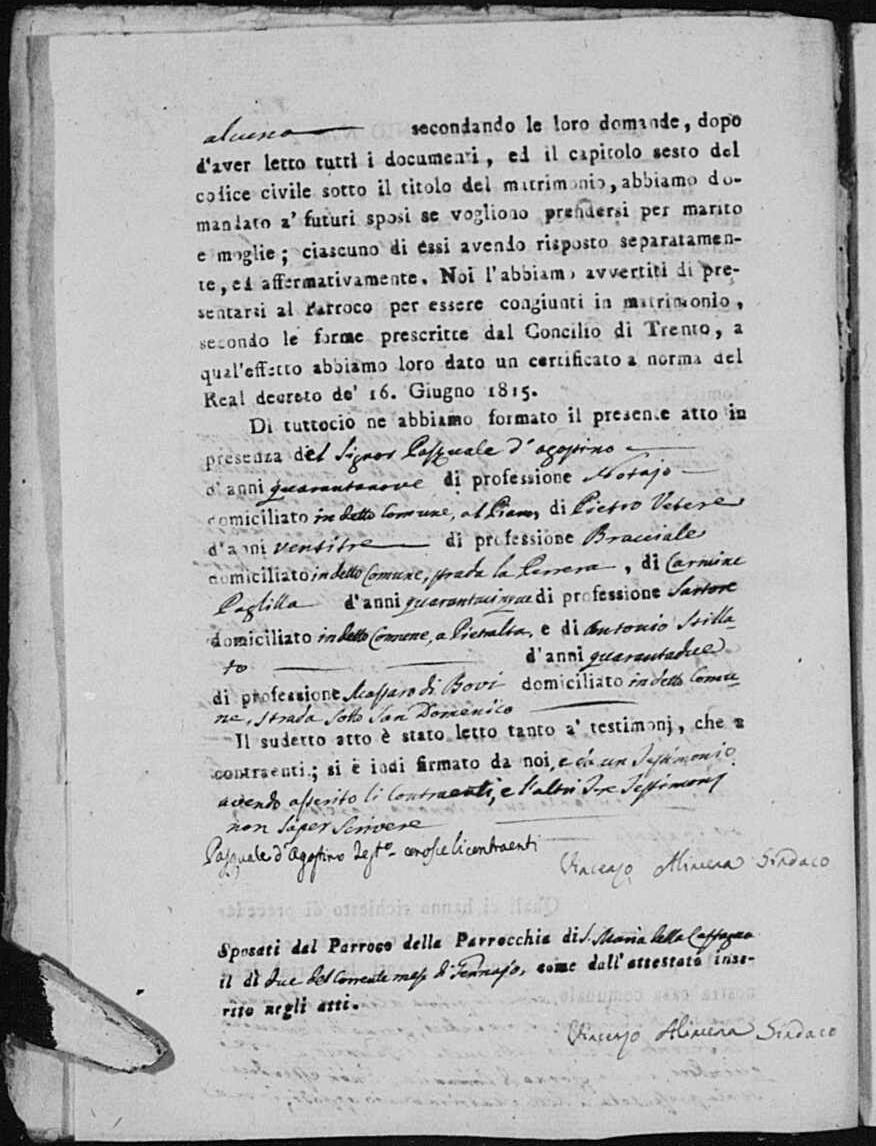 alcuna secondando le loro domande, dopo
d'aver letto tutti i documenti, ed il capitolo sesto del
codice civile sotto il titolo del matrimonio, abbiamo do-
mandato a' futuri sposi se vogliono prendersi per marito
e moglie; ciascuno di essi avendo risposto separatamen-
te, ed affermativamente. Noi l'abbiamo avvertiti di pre-
sentarsi al Parroco per essere congiunti in matrimonio,
secondo le forme prescritte dal Concilio di Trento, a
qual'effetto abbiamo loro dato un certificato a norma del
Real decreto de' 16. Giugno 1815.
Di tuttociò ne abbiamo formato il presente atto in
presenza del Signor Pasquale d'agostino
d'anni quarantanove di professione Notajo
domiciliato in detto Comune, al Piano, di Pietro Vetere
d'anni ventitre di professione Bracciale
domiciliato in detto Comune, strada la Perrera, di Carmine
Paglilla d'anni quarantacinque di professione Sartore
domiciliato in detto Comune, a Pietralta, e di Antonio Stilla-
to d'anni quarantadue
di professione Massaro di Bovi domiciliato in detto Comu-
ne, strada sotto San Domenico
Il sudetto atto è stato letto tanto a' testimonj, che a
contraenti; si è indi firmato da noi, e da un Testimonio
avendo asserito li Contraenti, e l'altri tre Testimonj
non saper scrivere
Pasquale d'Agostino Testo conosce li contraenti
Vincenzo Alimena Sindaco
Sposati dal Parroco della Parrocchia di S. Maria della
il dì due del corrente mese di Gennajo, come dall'attestato inse-
rito negli atti.
Vincenzo Alimena Sindaco